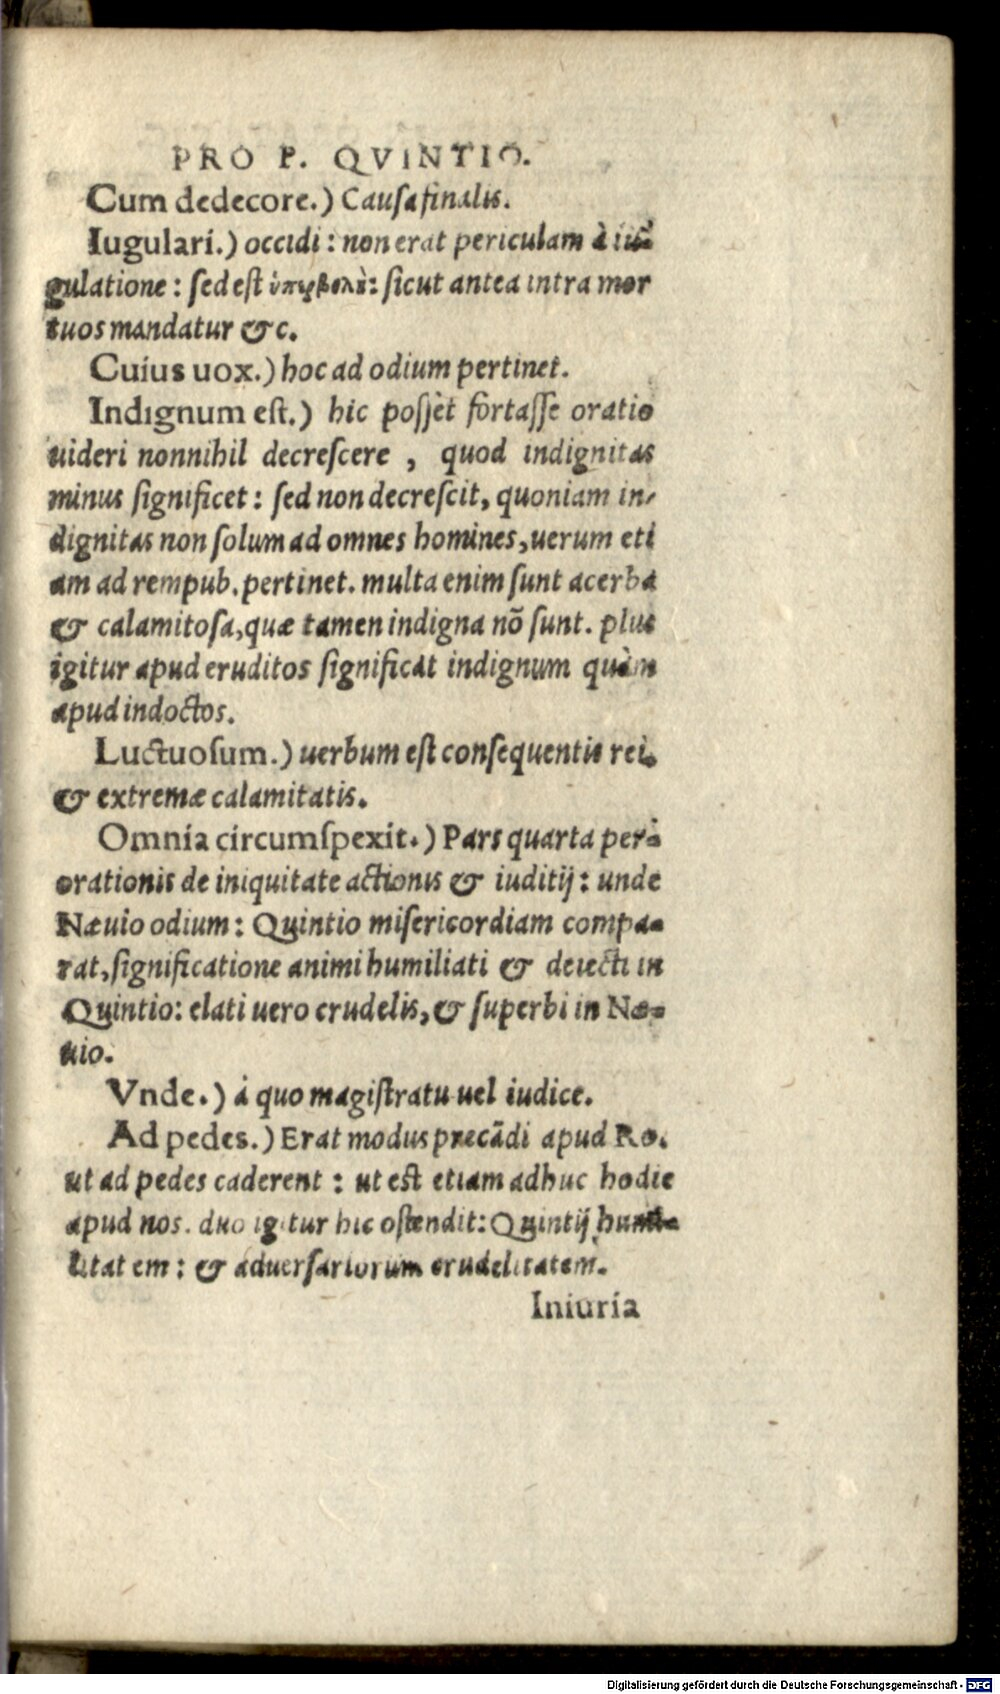 PRO P. QVINTIO.
Cum dedecore.) Causa finalis.
Iugulari.) occidi : non erat periculum à iu-
gulatione : sed est ὑπερβολὴ: sicut antea intra mor
tuos mandatur & c.
Cuius uox.) hoc ad odium pertinet.
Indignum est.) hic posset fortasse oratio
uideri nonnihil decrescere , quod indignitas
minus significet : sed non decrescit, quoniam in-
dignitas non solum ad omnes homines, uerum eti
am ad rempub. pertinet. multa enim sunt acerba
& calamitosa, quæ tamen indigna nō sunt. plus
igitur apud eruditos significat indignum quàm
apud indoctos.
Luctuosum.) uerbum est consequentis rei,
& extremæ calamitatis.
Omnia circumspexit.) Pars quarta per-
orationis de iniquitate actionis & iuditij : unde
Næuio odium : Quintio misericordiam compa-
rat, significatione animi humiliati & deiecti in
Quintio: elati uero crudelis, & superbi in Næ-
uio.
Vnde.) à quo magistratu uel iudice.
Ad pedes.) Erat modus precādi apud Ro.
ut ad pedes caderent : ut est etiam adhuc hodie
apud nos. duo igitur hic ostendit: Quintij humi-
litatem : & aduersariorum crudelitatem.
Iniuria
Digitalisierung gefördert durch die Deutsche Forschungsgemeinschaft - DFG